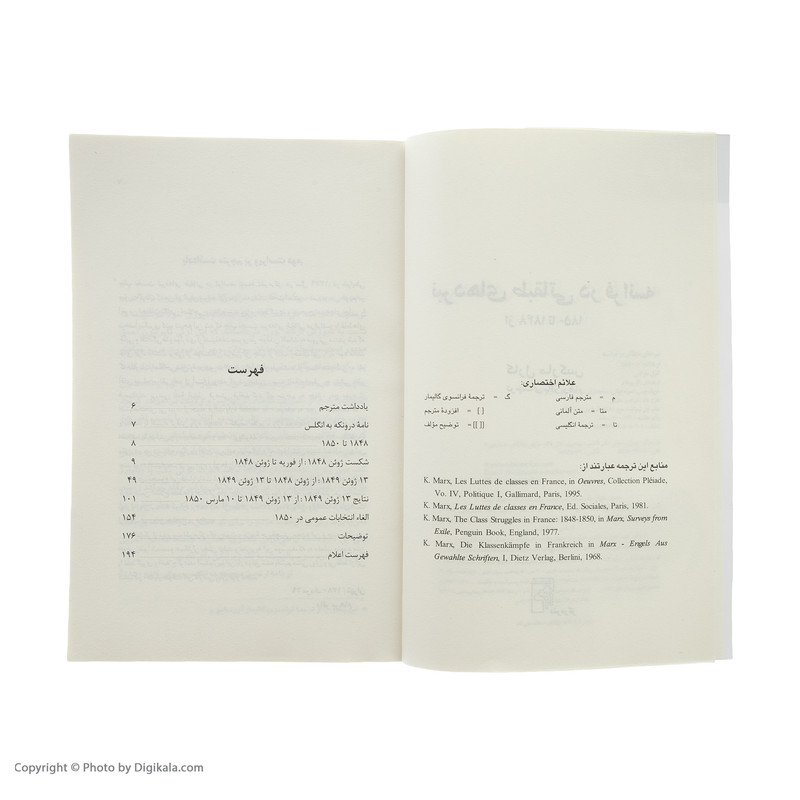 علائم اختصاری:
م = مترجم فارسی گ = ترجمهٔ فرانسوی گالیمار
متا = متن آلمانی [ ] = افزودهٔ مترجم
تا = ترجمهٔ انگلیسی [[ ]] = توضیح مؤلف
منابع این ترجمه عبارتند از:
K. Marx, Les Luttes de classes en France, in Oeuvres, Collection Pléiade,
Vo. IV, Politique I, Gallimard, Paris, 1995.
K. Marx, Les Luttes de classes en France, Ed. Sociales, Paris, 1981.
K. Marx, The Class Struggles in France: 1848-1850, in Marx, Surveys from
Exile, Penguin Book, England, 1977.
K. Marx, Die Klassenkämpfe in Frankreich in Marx - Engels Aus
Gewahlte Schriften, I, Dietz Verlag, Berlini, 1968.
فهرست
یادداشت مترجم ۶
نامهٔ درونکه به انگلس ۷
۱۸۴۸ تا ۱۸۵۰ ۸
شکست ژوئن ۱۸۴۸: از فوریه تا ژوئن ۱۸۴۸ ۹
۱۳ ژوئن ۱۸۴۹: از ژوئن ۱۸۴۸ تا ۱۳ ژوئن ۱۸۴۹ ۴۹
نتایج ۱۳ ژوئن ۱۸۴۹: از ۱۳ ژوئن ۱۸۴۹ تا ۱۰ مارس ۱۸۵۰ ۱۰۱
الغاء انتخابات عمومی در ۱۸۵۰ ۱۵۴
توضیحات ۱۷۶
فهرست اعلام ۱۹۴
Copyright © Photo by Digikala.com